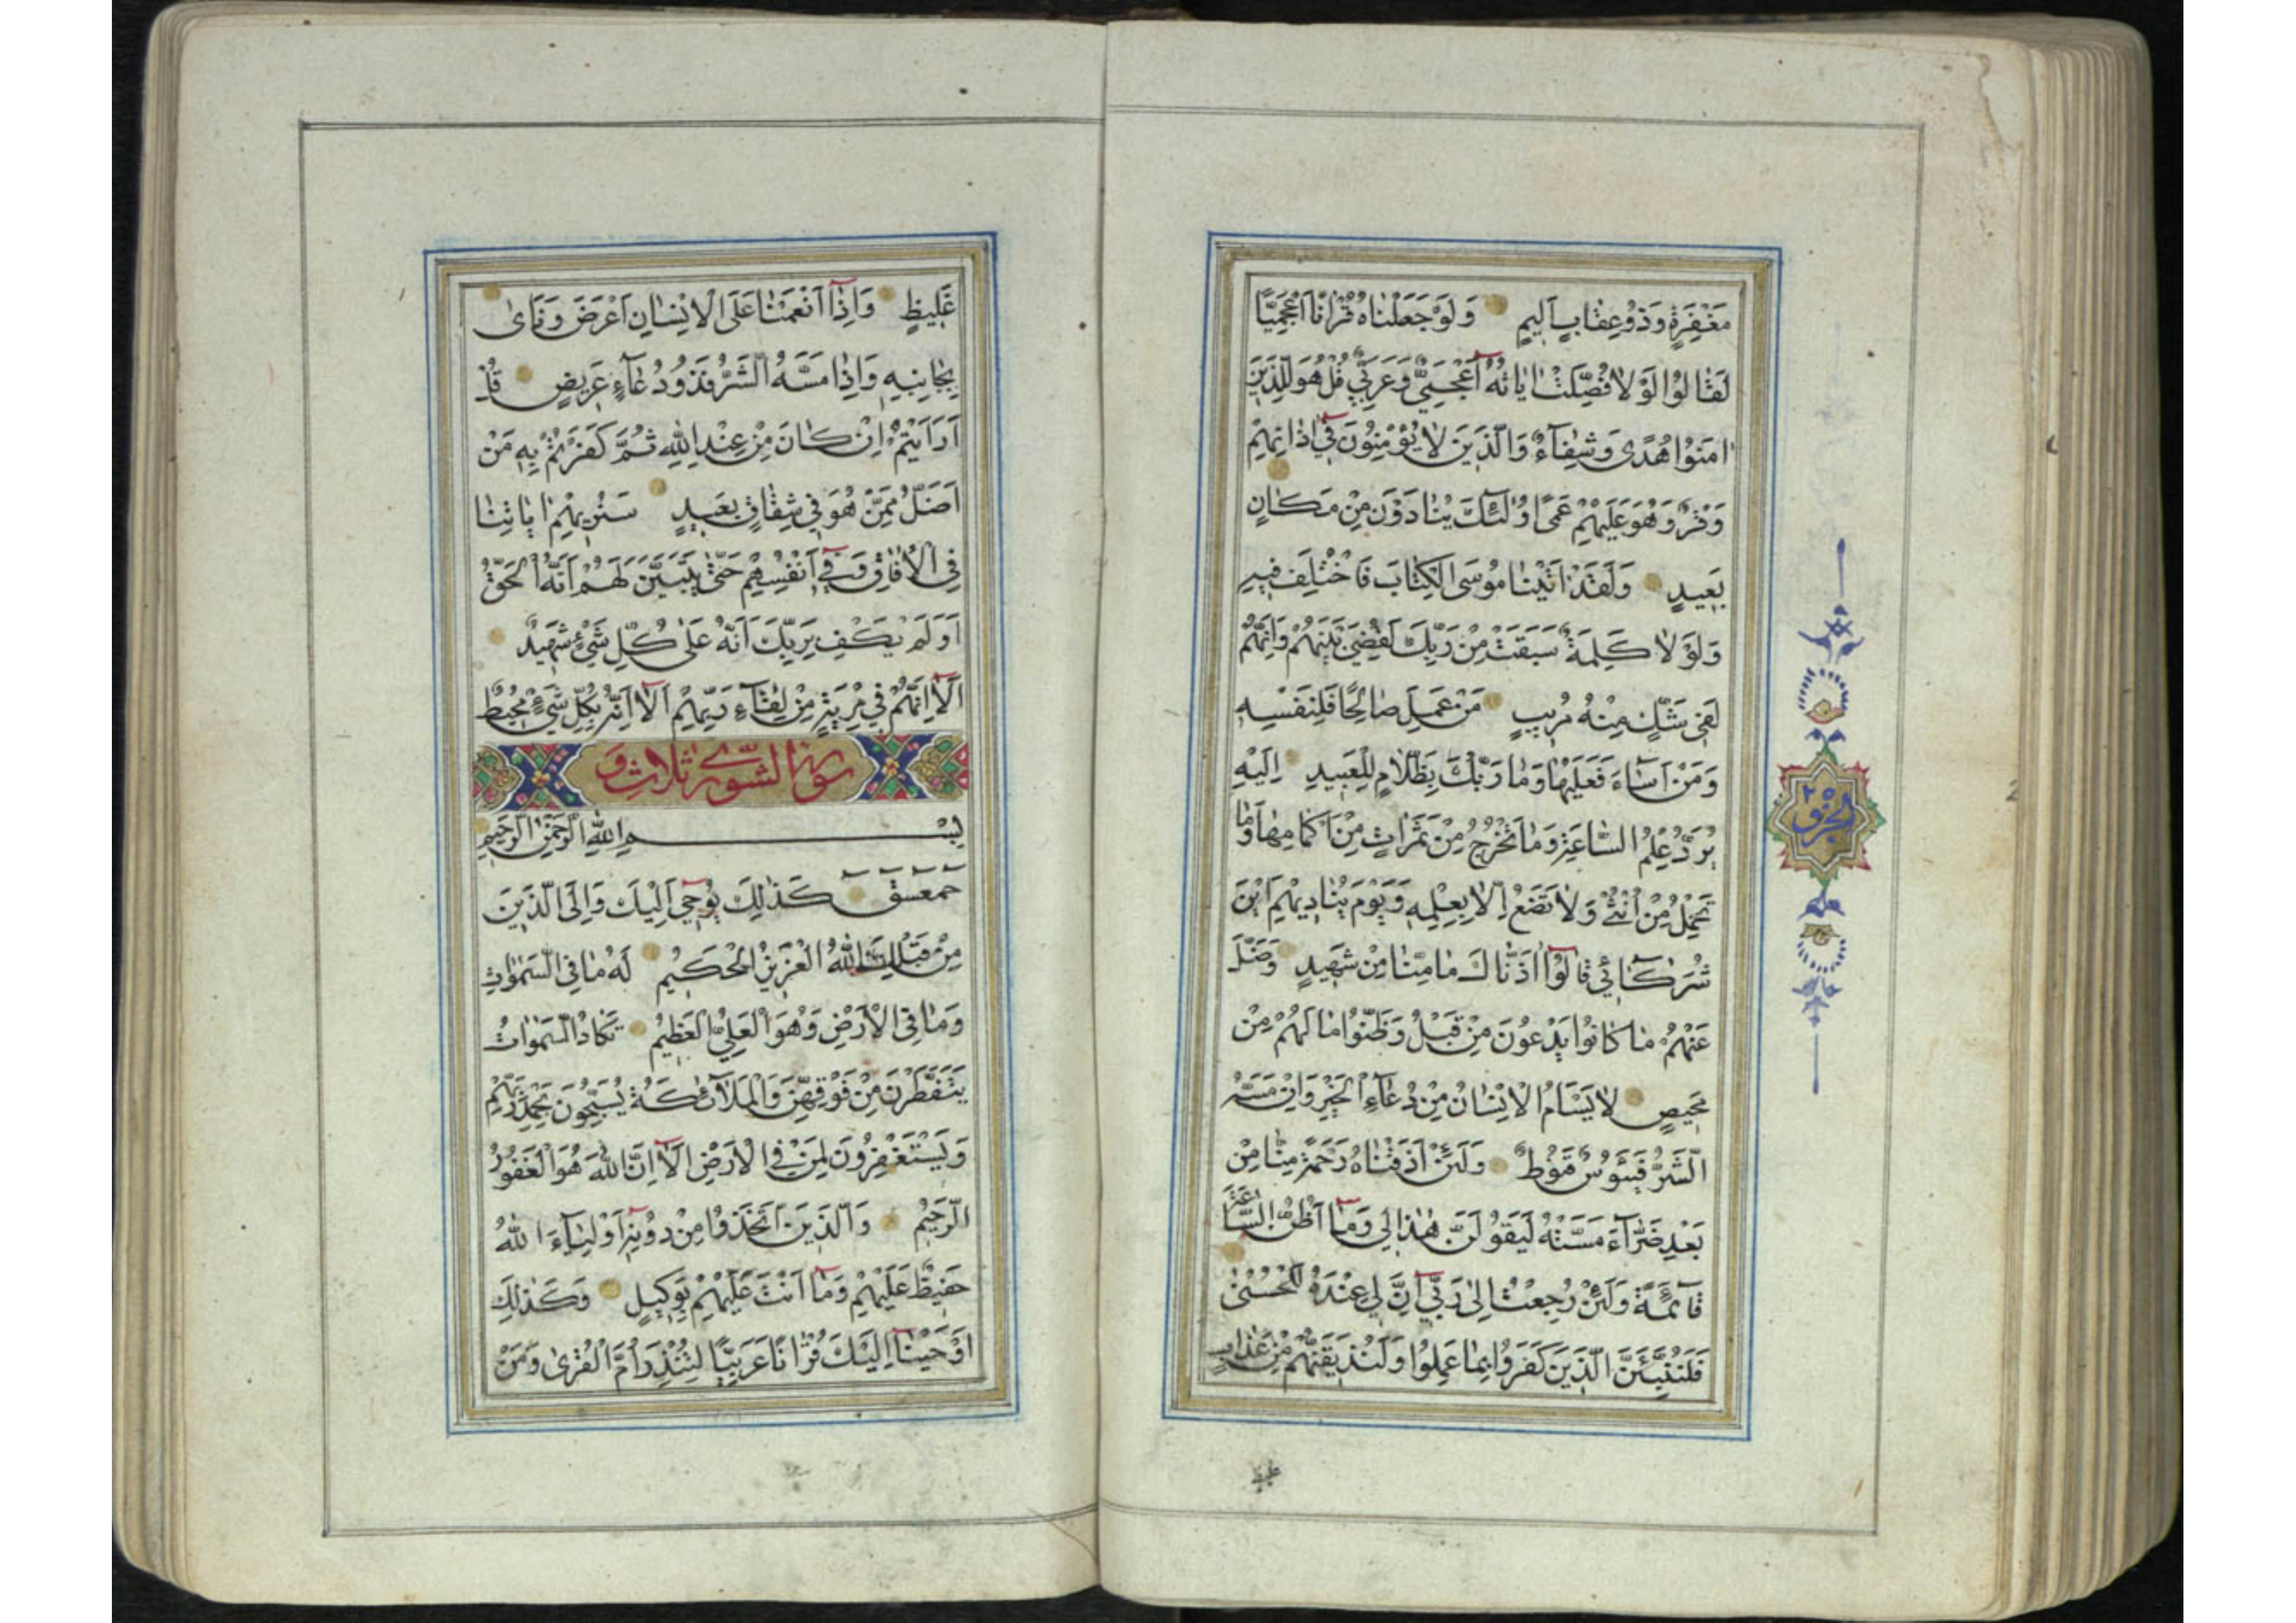 مَغْفِرَةٍ وَذُو عِقَابٍ اَلِيمٍ وَلَوْ جَعَلْنَاهُ قُرْاٰنًا اَعْجَمِيًّا
لَقَالُوا لَوْلَا فُصِّلَتْ اٰيَاتُهُ ءَاَعْجَمِيٌّ وَعَرَبِيٌّ قُلْ هُوَ لِلَّذِينَ
اٰمَنُوا هُدًى وَشِفَآءٌ وَالَّذِينَ لَا يُؤْمِنُونَ فِي اٰذَانِهِمْ
وَقْرٌ وَهُوَ عَلَيْهِمْ عَمًى اُولٰٓئِكَ يُنَادَوْنَ مِنْ مَكَانٍ
بَعِيدٍ وَلَقَدْ اٰتَيْنَا مُوسَى الْكِتَابَ فَاخْتُلِفَ فِيهِ
وَلَوْلَا كَلِمَةٌ سَبَقَتْ مِنْ رَبِّكَ لَقُضِيَ بَيْنَهُمْ وَاِنَّهُمْ
لَفِي شَكٍّ مِنْهُ مُرِيبٍ مَنْ عَمِلَ صَالِحًا فَلِنَفْسِهِ
وَمَنْ اَسَآءَ فَعَلَيْهَا وَمَا رَبُّكَ بِظَلَّامٍ لِلْعَبِيدِ اِلَيْهِ
يُرَدُّ عِلْمُ السَّاعَةِ وَمَا تَخْرُجُ مِنْ ثَمَرَاتٍ مِنْ اَكْمَامِهَا وَمَا
تَحْمِلُ مِنْ اُنْثٰى وَلَا تَضَعُ اِلَّا بِعِلْمِهِ وَيَوْمَ يُنَادِيهِمْ اَيْنَ
شُرَكَآئِي قَالُوا اٰذَنَّاكَ مَا مِنَّا مِنْ شَهِيدٍ وَضَلَّ
عَنْهُمْ مَا كَانُوا يَدْعُونَ مِنْ قَبْلُ وَظَنُّوا مَا لَهُمْ مِنْ
مَحِيصٍ لَا يَسْاَمُ الْاِنْسَانُ مِنْ دُعَآءِ الْخَيْرِ وَاِنْ مَسَّهُ
الشَّرُّ فَيَؤُسٌ قَنُوطٌ وَلَئِنْ اَذَقْنَاهُ رَحْمَةً مِنَّا مِنْ
بَعْدِ ضَرَّآءَ مَسَّتْهُ لَيَقُولَنَّ هٰذَا لِي وَمَا اَظُنُّ السَّاعَةَ
قَآئِمَةً وَلَئِنْ رُجِعْتُ اِلٰى رَبِّي اِنَّ لِي عِنْدَهُ لَلْحُسْنٰى
فَلَنُنَبِّئَنَّ الَّذِينَ كَفَرُوا بِمَا عَمِلُوا وَلَنُذِيقَنَّهُمْ مِنْ عَذَابٍ
الجزو ٢٥
غليظ
غَلِيظٍ وَاِذَا اَنْعَمْنَا عَلَى الْاِنْسَانِ اَعْرَضَ وَنَاٰى
بِجَانِبِهِ وَاِذَا مَسَّهُ الشَّرُّ فَذُو دُعَآءٍ عَرِيضٍ قُلْ
اَرَاَيْتُمْ اِنْ كَانَ مِنْ عِنْدِ اللّٰهِ ثُمَّ كَفَرْتُمْ بِهِ مَنْ
اَضَلُّ مِمَّنْ هُوَ فِي شِقَاقٍ بَعِيدٍ سَنُرِيهِمْ اٰيَاتِنَا
فِي الْاٰفَاقِ وَفِي اَنْفُسِهِمْ حَتّٰى يَتَبَيَّنَ لَهُمْ اَنَّهُ الْحَقُّ
اَوَلَمْ يَكْفِ بِرَبِّكَ اَنَّهُ عَلٰى كُلِّ شَيْءٍ شَهِيدٌ
اَلَا اِنَّهُمْ فِي مِرْيَةٍ مِنْ لِقَآءِ رَبِّهِمْ اَلَا اِنَّهُ بِكُلِّ شَيْءٍ مُحِيطٌ
سورة الشورى ثلاث و
بِسْمِ اللّٰهِ الرَّحْمٰنِ الرَّحِيمِ
حمعسق كَذٰلِكَ يُوحِي اِلَيْكَ وَاِلَى الَّذِينَ
مِنْ قَبْلِكَ اللّٰهُ الْعَزِيزُ الْحَكِيمُ لَهُ مَا فِي السَّمٰوَاتِ
وَمَا فِي الْاَرْضِ وَهُوَ الْعَلِيُّ الْعَظِيمُ تَكَادُ السَّمٰوَاتُ
يَتَفَطَّرْنَ مِنْ فَوْقِهِنَّ وَالْمَلَآئِكَةُ يُسَبِّحُونَ بِحَمْدِ رَبِّهِمْ
وَيَسْتَغْفِرُونَ لِمَنْ فِي الْاَرْضِ اَلَا اِنَّ اللّٰهَ هُوَ الْغَفُورُ
الرَّحِيمُ وَالَّذِينَ اتَّخَذُوا مِنْ دُونِهِ اَوْلِيَآءَ اللّٰهُ
حَفِيظٌ عَلَيْهِمْ وَمَا اَنْتَ عَلَيْهِمْ بِوَكِيلٍ وَكَذٰلِكَ
اَوْحَيْنَا اِلَيْكَ قُرْاٰنًا عَرَبِيًّا لِتُنْذِرَ اُمَّ الْقُرٰى وَمَنْ